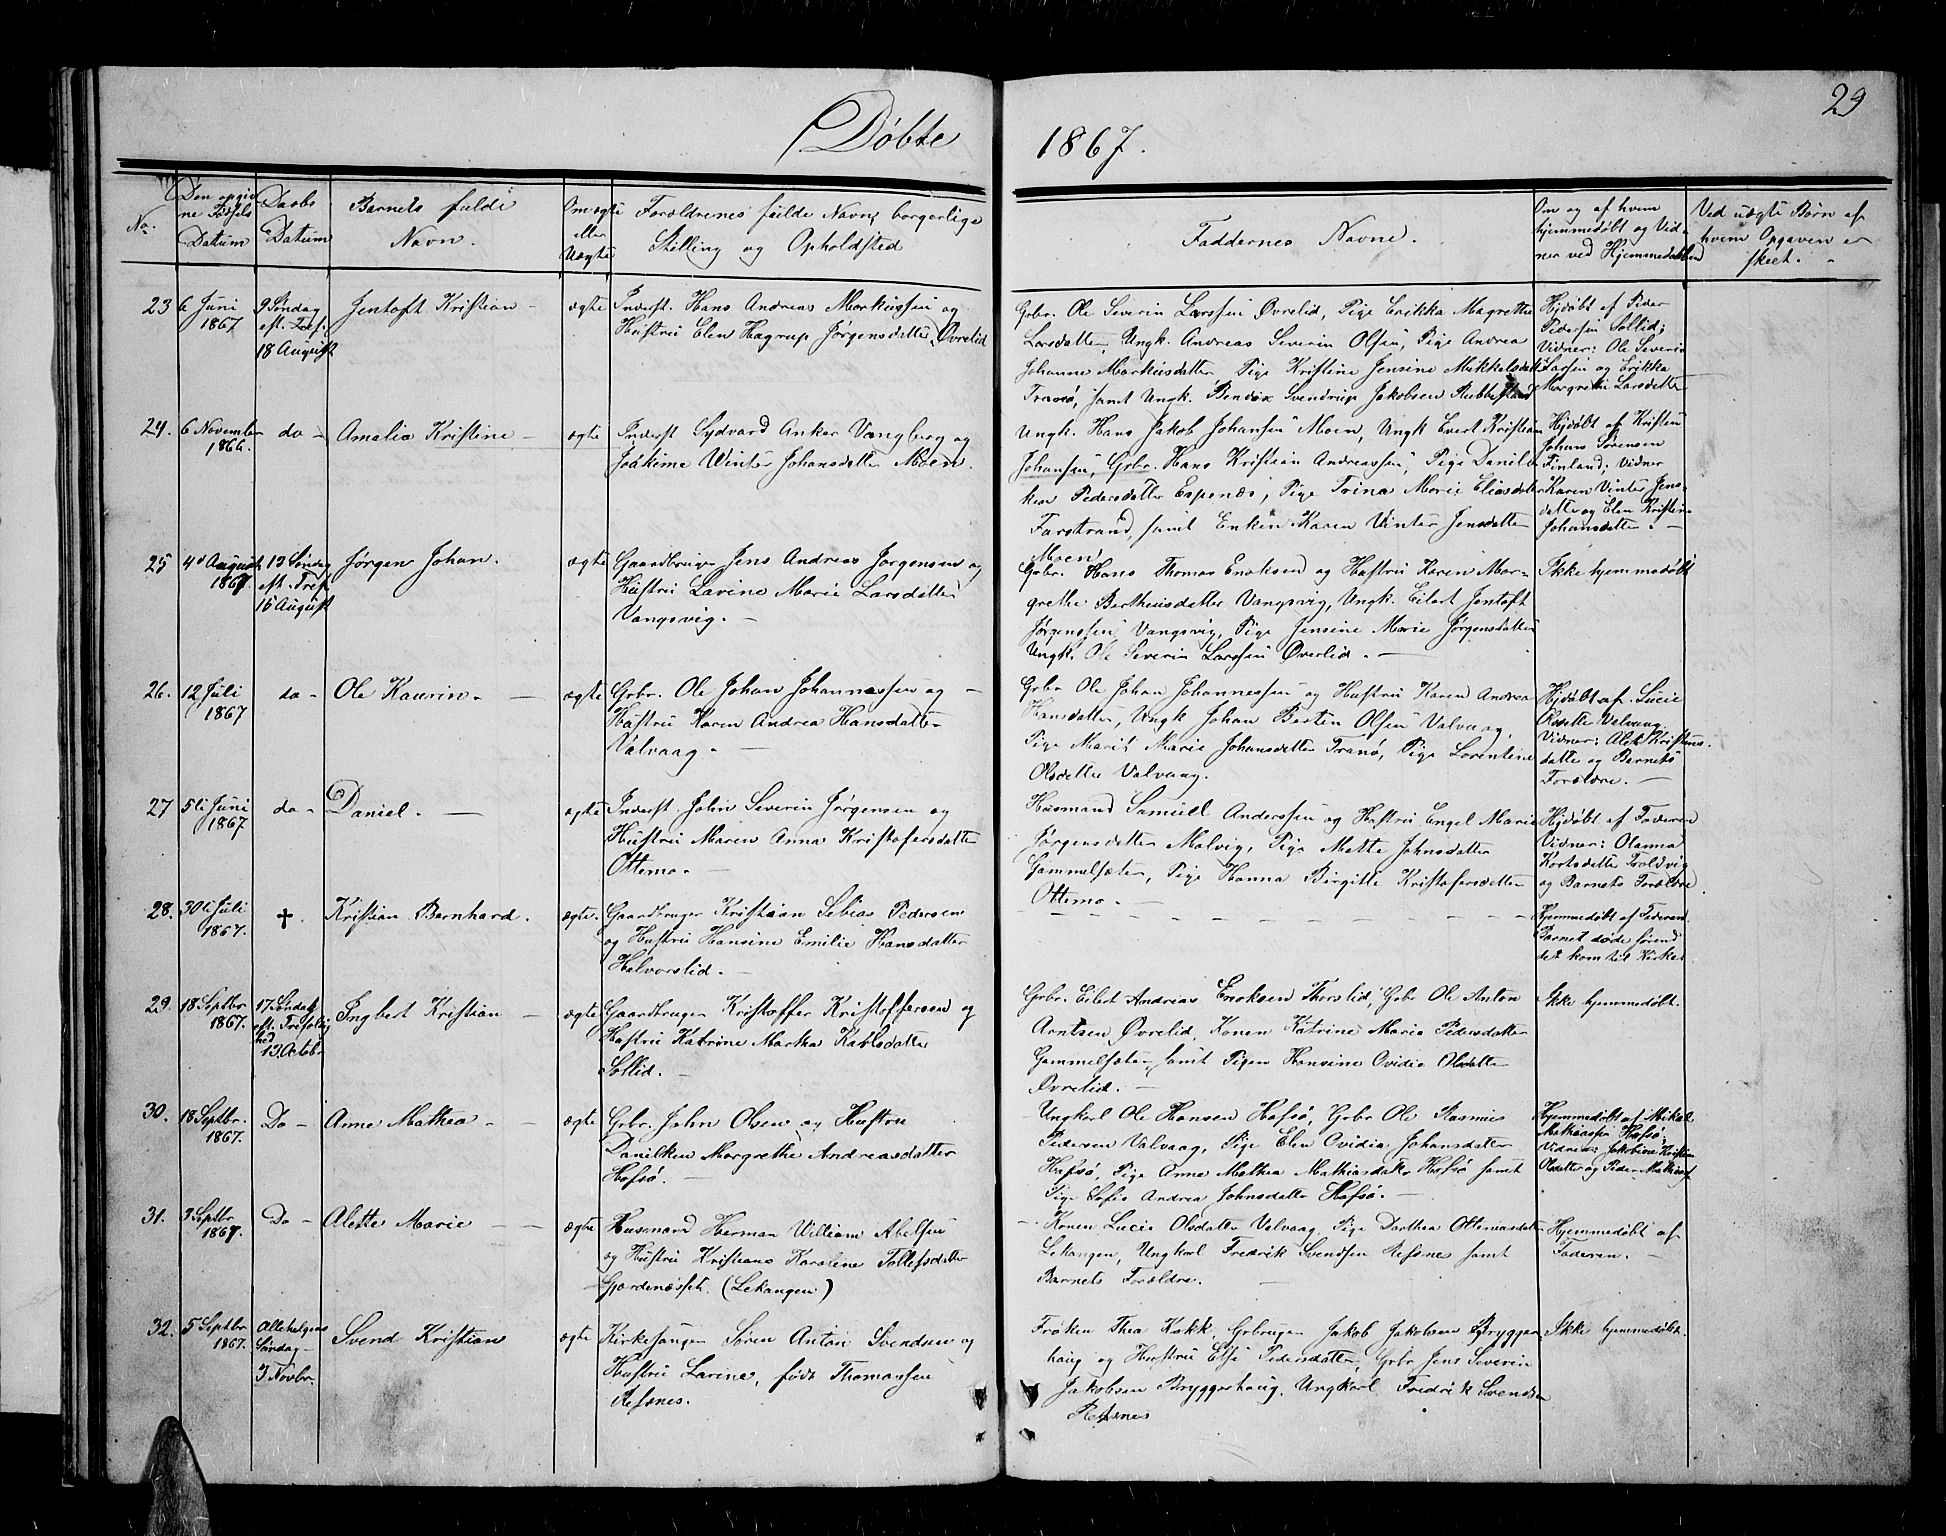 Døbte
1867.
29
No.
Den opgiv
ne Fødsels
Datum
Daabs
Datum
Barnets fulde
Navn.
Om ægte
eller
Uægte
Forældrenes fulde Navn, borgerlige
Stilling og Opholdsted
Faddernes Navne.
Om og af hvem
hjemmedøbt og Vid-
ner ved Hjemmedøben
Ved uægte Børn af
hvem Opgaven er
skeet.
23
6 Juni
1867
9 Søndag
eft. Tref.
18 August
Jentoft Kristian
ægte
Inderst. Hans Andreas Markussen og
Hustru Elen Hagrup Jørgensdatter, Øvrelid
Grbr. Ole Severin Larssen Øvrelid, Pige Erikka Magrethe
Larsdatter, Ungk. Andreas Severin Olsen, Pige Andrea
Johanne Markusdatter, Pige Kristine Jensine Mikkelsdatt
Tranø, samt Ungk. Bendix Svendrup Jakobsen Stubbestrand
Hjdøbt af Peder
Pedersen Sollid;
Vidner: Ole Severin
Larsen og Erikka
Margrethe Larsdatter
24.
6 November
1866.
do
Amalia Kristine
ægte
Inderst Sydvard Anker Vangberg og
Joakime Winter Johansdatter Moen.
Ungk. Hans Jakob Johansen Moen, Ungk Evert Kristian
Johansen, Grbr. Hans Kristian Andreassen, Pige Danil-
ken Pedersdatter Espenes, Pige Trina Marie Eliasdatter
Farstrand, samt Enken Karen Vinter Jensdatter
Moen
Hjdøbt af Kristen
Johans Sørensen
Finland; Vidner
Karen Vinter Jens-
datter og Elen Kristine
Johansdatter.
25
4d August
1867
13 Søndag
eft. Tref
15 August
Jørgen Johan.
ægte
Gaardbruger Jens Andreas Jørgensen og
Hustru Lavine Marie Larsdatter
Vangsvig.
Grbr. Hans Thomas Enoksen og Hustru Karen Mar-
grethe Bertheusdatter Vangsvig, Ungk. Eilert Jentoft
Jørgenssen Vangsvig, Pige Jensine Marie Jørgensdatter
Ungk. Ole Severin Larssen Øverlid.
Ikke hjemmedøbt
26.
12 Juli
1867
do
Ole Kaurin.
ægte
Grbr. Ole Johan Johannessen og
Hustru Karen Andrea Hansdatter
Valvaag.
Grbr Ole Johan Johannessen og Hustru Karen Andrea
Hansdatter, Ungk Johan Bertin Olsen Valvaag,
Pige Marit Marie Johansdatter Tranø, Pige Lorentine
Olsdatter Valvaag.
Hjdøbt af Lucie
Olsdatter Valvaag.
Vidner: Alet Kristens-
datter og Barnets
Forældre.
27
5te Juni
1867
do
Daniel.
ægte
Inderst. John Severin Jørgensen og
Hustru Maren Anna Kristofersdatter
Ottemo.
Husmand Samuel Anderssen og Hustru Engel Marie
Jørgensdatter Malvig, Pige Mette Johnsdatter
Gammelsæter, Pige Hanna Birgitte Kristofersdatter
Ottemo
Hjdøbt af Faderen
Vidner: Olanna
Kortsdatter Troldvig
og Barnets Forældre
28.
30te Juli
1867.
✝
Kristian Bernhard.
ægte.
Gaardbruger Kristian Sebias Pedersen
og Hustru Hansine Emilie Hansdatter
Halvorslid.
Hjemmedøbt af Faderen.
Barnet døde førend
det kom til Kirke.
29.
18 Septbr.
1867.
17. Søndag
eft. Trefoldig
hed
13. Octobr
Ingbert Kristian
ægte
Gaardbruger Kristoffer Kristoffersen og
Hustru Katrine Marka Karlsdatter
Sollid.
Grbr. Eilert Andreas Enoksen Thorslid, Grbr Ole Anton
Arntsen Øvrelid, Konen Katrine Marie Pedersdatter
Gammelsæter, samt Pigen Hanvine Ovidia Olsdatter
Øvrelid.
Ikke hjemmedøbt.
30.
18 Septbr.
1867.
Do
Anne Mathea
ægte
Grbr. John Olsen og Hustru
Danilken Margrethe Andreasdatter
Hofsø.
Ungkarl Ole Hansen Hofsø, Grbr Ole Rasmus
Pedersen Valvaag, Pige Elen Ovidia Johansdatter
Hofsø, Pige Anne Mathea Mathiasdatter Hofsø samt
Pige Sofie Andrea Johnsdatter Hofsø.
Hjemmedøbt af Mikal
Mathiassen Hofsø;
Vidner: Jakobine Kristine
Olsdatter og Peder Mathiasf
31.
3 Septbr
1867.
Do
Alette Marie
ægte
Husmand Herman William Abelsen
og Hustru Kristiane Karoline Tollefsdatter
Gjærdenæsset. (Lekangen)
Konen Lucie Olsdatter Valvaag, Pige Dorthea Otteniasdatter
Lekangen, Ungkarl Fredrik Svendsen Refsnes samt
Barnets Forældre.
Hjemmedøbt af
Faderen.
32.
5 Septbr
1867.
Allehelgens
Søndag
3 Novbr.
Svend Kristian
ægte
Kirkesanger Søren Anton Svendsen og
Hustru Larine, født Thomassen
Refsnes.
Frøken Thea Kokk, Grbruger Jakob Jakobsen Brygger-
haug og Hustru Else Pedersdatter, Grbr Jens Severin
Jakobsen Bryggerhaug, Ungkarl Fredrik Svendsen
Refsnes
Ikke hjemmedøbt.